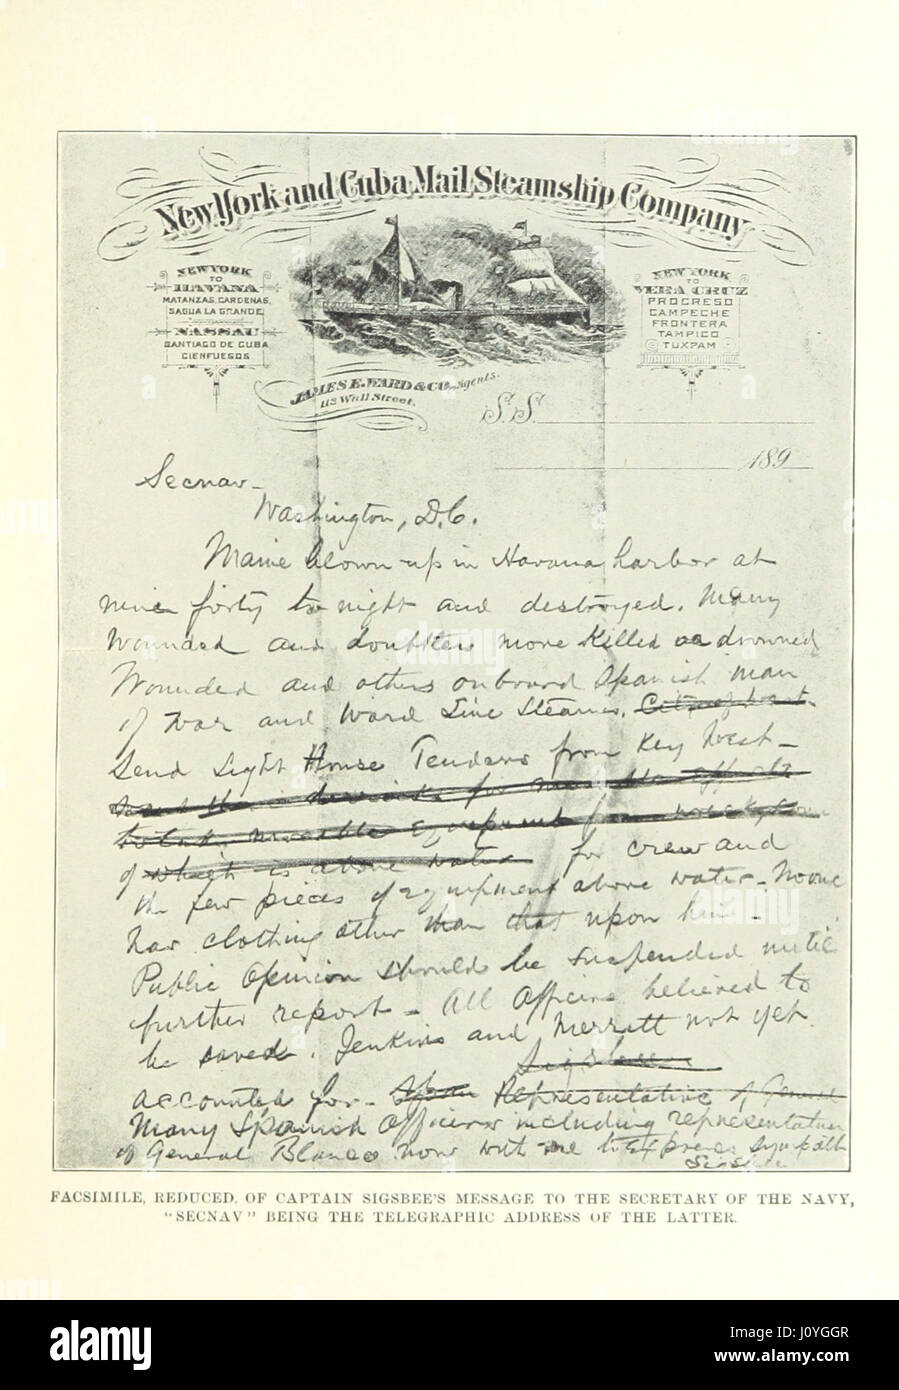 New York and Cuba Mail Steamship Company
NEW YORK
TO
HAVANA
MATANZAS, CARDENAS,
SAGUA LA GRANDE,
NASSAU
SANTIAGO DE CUBA
CIENFUEGOS.
NEW YORK
TO
VERA CRUZ
PROGRESO
CAMPECHE
FRONTERA
TAMPICO
TUXPAM
JAMES E. WARD & CO. Agents.
113 Wall Street.
S.S.
189
Secnav-
Washington, D.C.
Maine blown up in Havana harbor at
nine forty to night and destroyed. Many
wounded and doubtless more killed or drowned
Wounded and others on board Spanish man
of war and Ward Line Steamer. City of Wash.
Send Light House Tenders from Key West-
equipment from
of which is above water for crew and
the few pieces of equipment above water - No one
has clothing other than that upon him.
Public Opinion should be suspended until
further report - All Officers believed to
be saved. Jenkins and Merritt not yet
Sigsbee
accounted for - Representative of General
Many Spanish Officers including representatives
of General Blanco now with me to express sympathy
Sigsbee
FACSIMILE, REDUCED, OF CAPTAIN SIGSBEE'S MESSAGE TO THE SECRETARY OF THE NAVY,
"SECNAV" BEING THE TELEGRAPHIC ADDRESS OF THE LATTER.
alamy
Image ID: J0YGGR
www.alamy.com